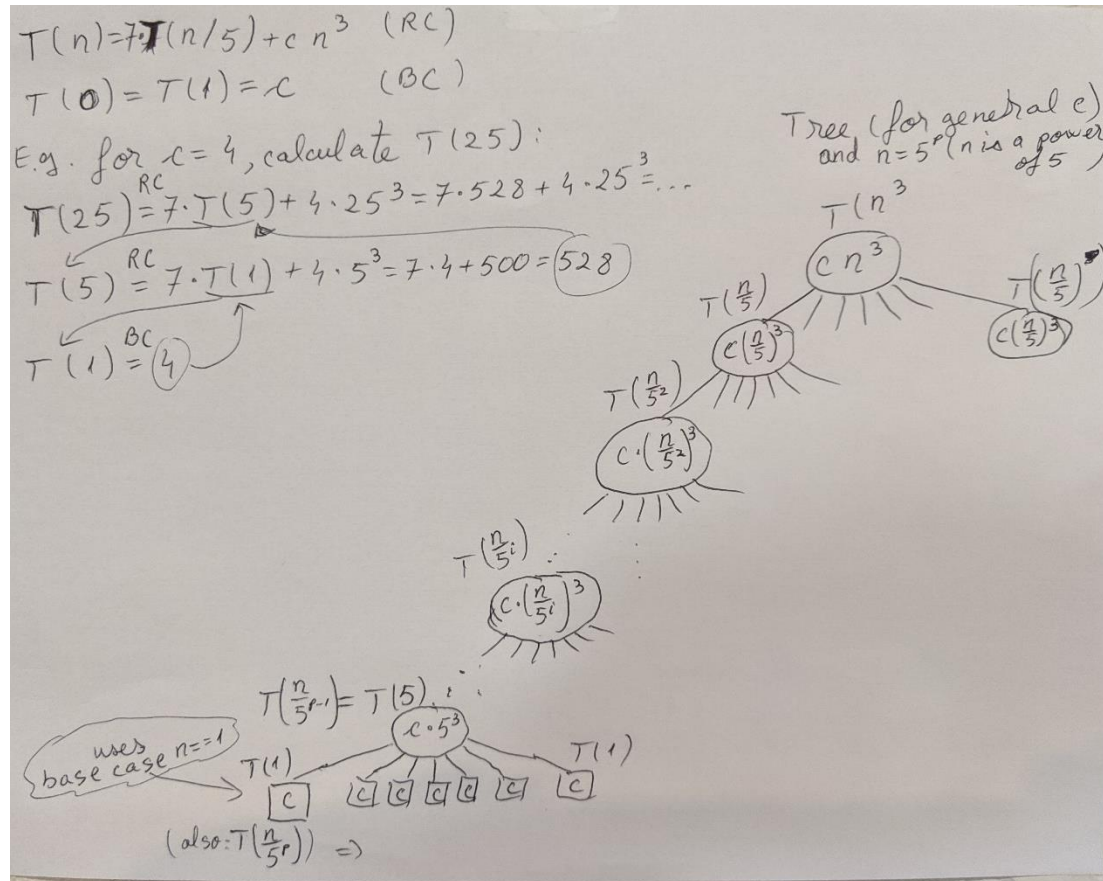 T(n)=7·T(n/5)+c n³ (RC)
T(0)=T(1)=c (BC)
E.g. for c=4, calculate T(25):
T(25) =RC 7·T(5)+4·25³=7·528+4·25³=...
T(5) =RC 7·T(1)+4·5³=7·4+500=528
T(1) =BC 4
Tree (for general c)
and n=5ᵖ (n is a power
of 5)
T(n³
cn³
T(n/5)
c(n/5)³
T(n/5)
c(n/5)³
T(n/5²)
c·(n/5²)³
T(n/5ⁱ)
c·(n/5ⁱ)³
T(n/5ᵖ⁻¹)=T(5)
c·5³
uses
base case n==1
T(1)
T(1)
c c c c c c c
(also: T(n/5ᵖ)) =>